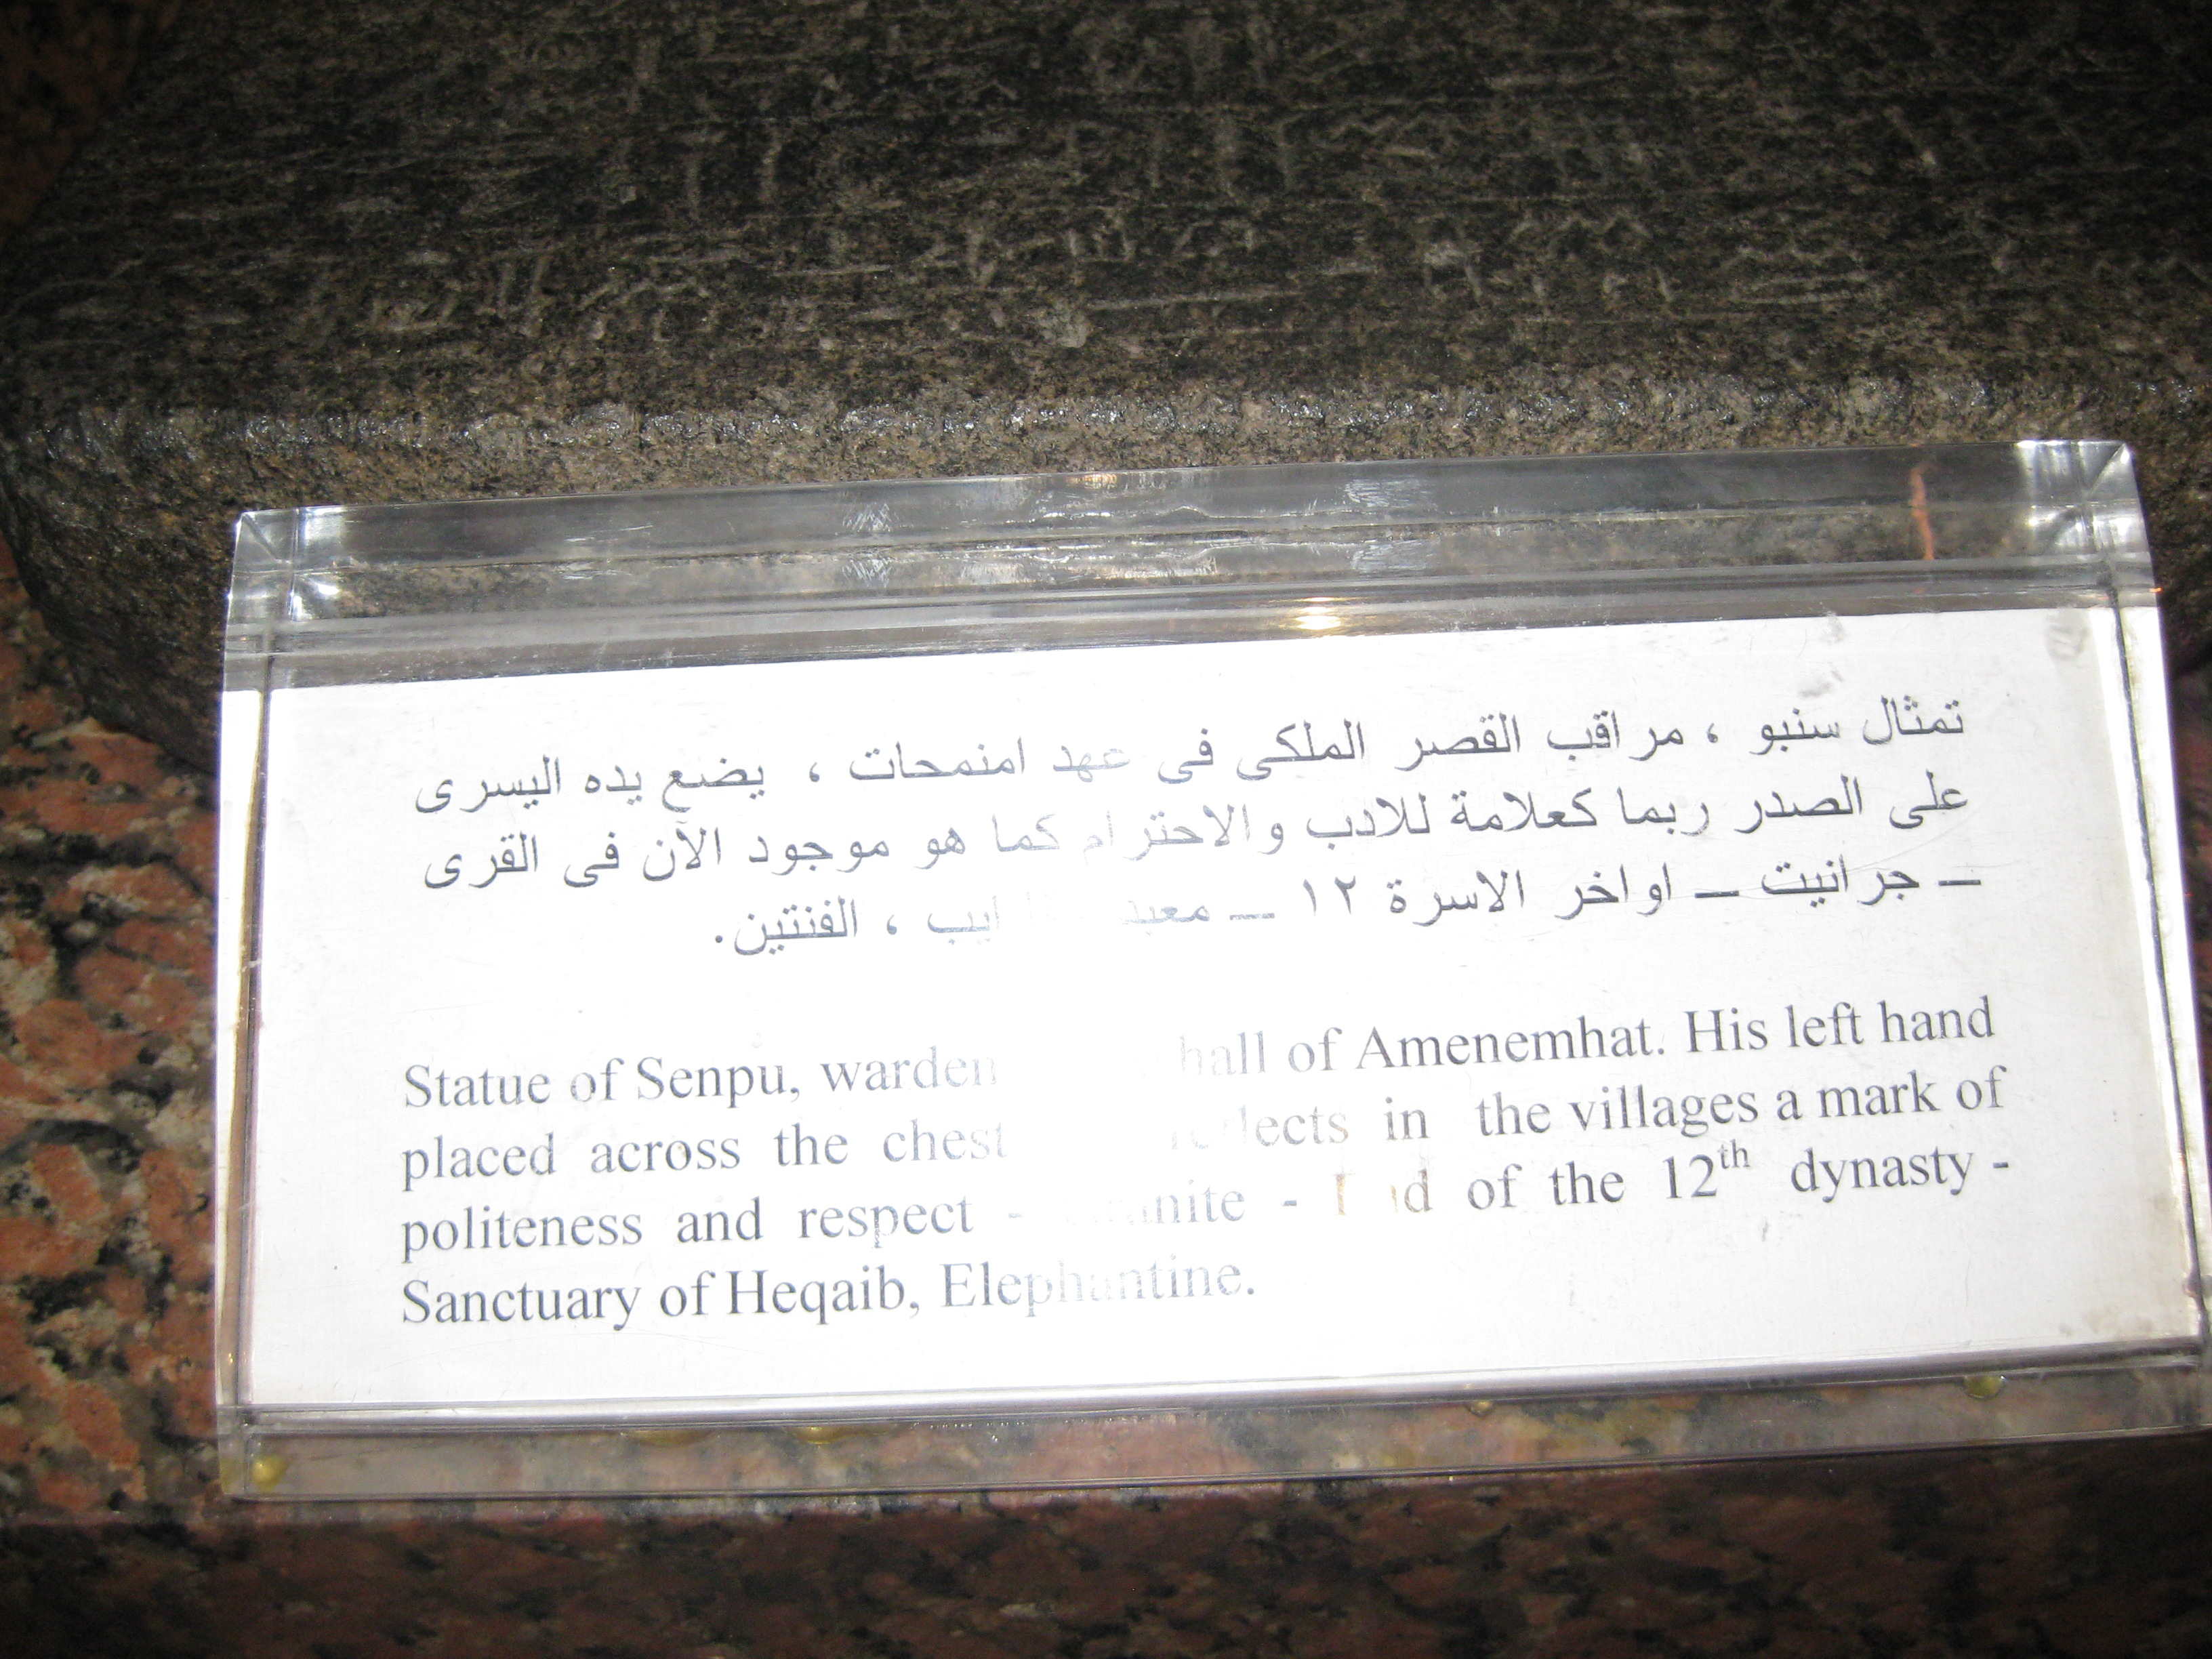 تمثال سنبو ، مراقب القصر الملكى فى عهد امنمحات ، يضع يده اليسرى
على الصدر ربما كعلامة للادب والاحترام كما هو موجود الآن فى القرى
– جرانيت – اواخر الاسرة ١٢ – معبد ، الفنتين.
Statue of Senpu, warden hall of Amenemhat. His left hand
placed across the chest in the villages a mark of
politeness and respect - - of the 12th dynasty -
Sanctuary of Heqaib, Elephantine.